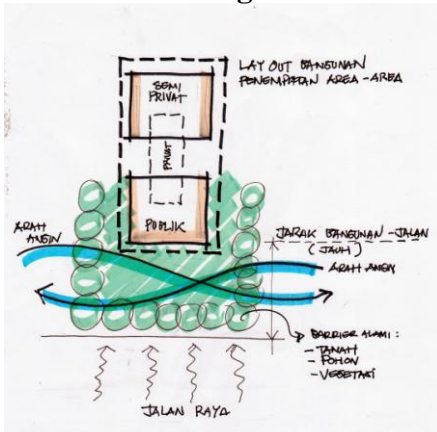 LAY OUT BANGUNAN
PENEMPATAN AREA-AREA
SEMI
PRIVAT
PRIVAT
PUBLIK
ARAH
ANGIN
JARAK BANGUNAN-JALAN
(JAUH)
ARAH ANGIN
BARRIER ALAMI :
- TANAH
- POHON
- VEGETASI
JALAN RAYA